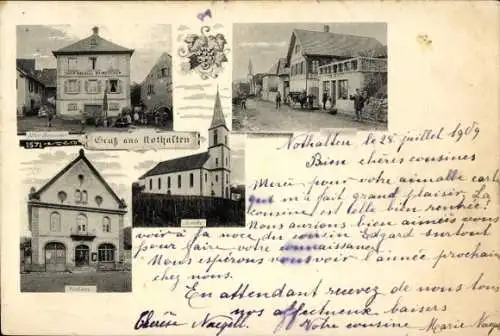 Gruß aus Nothalten
1571
Nothalten le 28 juillet 1909
Bien chères cousines
Merci pour votre aimable carte
qui m'a fait grand plaisir. La
cousine est-elle bien rentrée?
Nous aurions bien aimé vous
voir à la noce du cousin Edgard surtout
pour faire votre connaissance.
Nous espérons vous voir l'année prochaine
chez nous.
En attendant recevez de nous tous
nos affectueux baisers
Votre cousine Marie